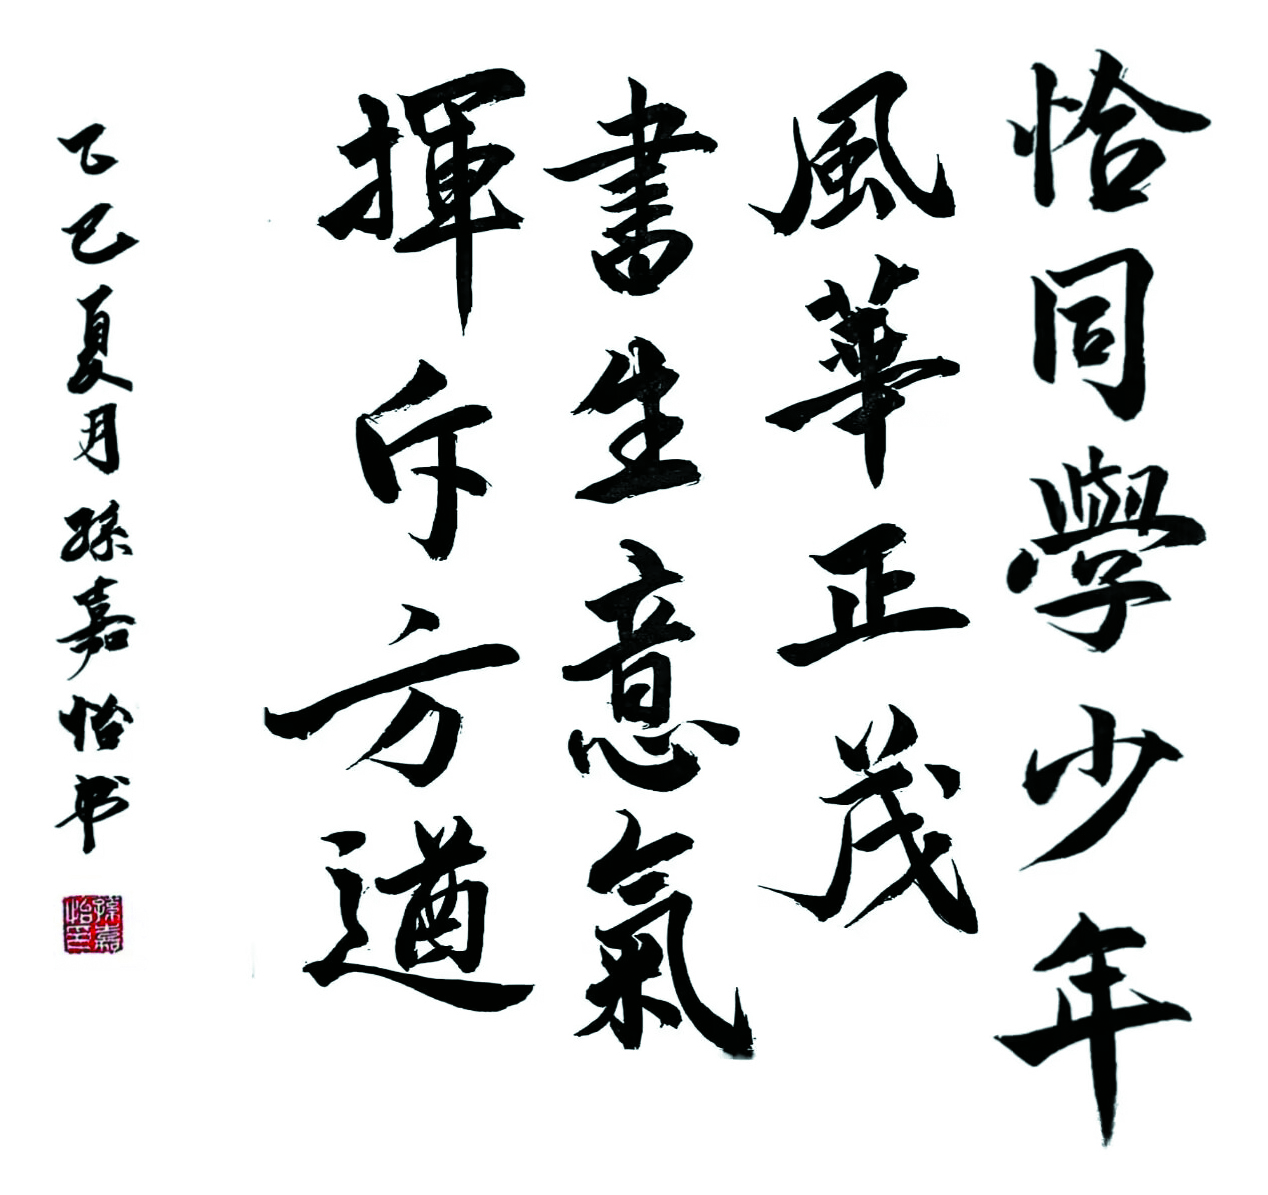 恰同學少年
風華正茂
書生意氣
揮斥方遒
乙巳夏月孫嘉怡书
孫嘉怡印